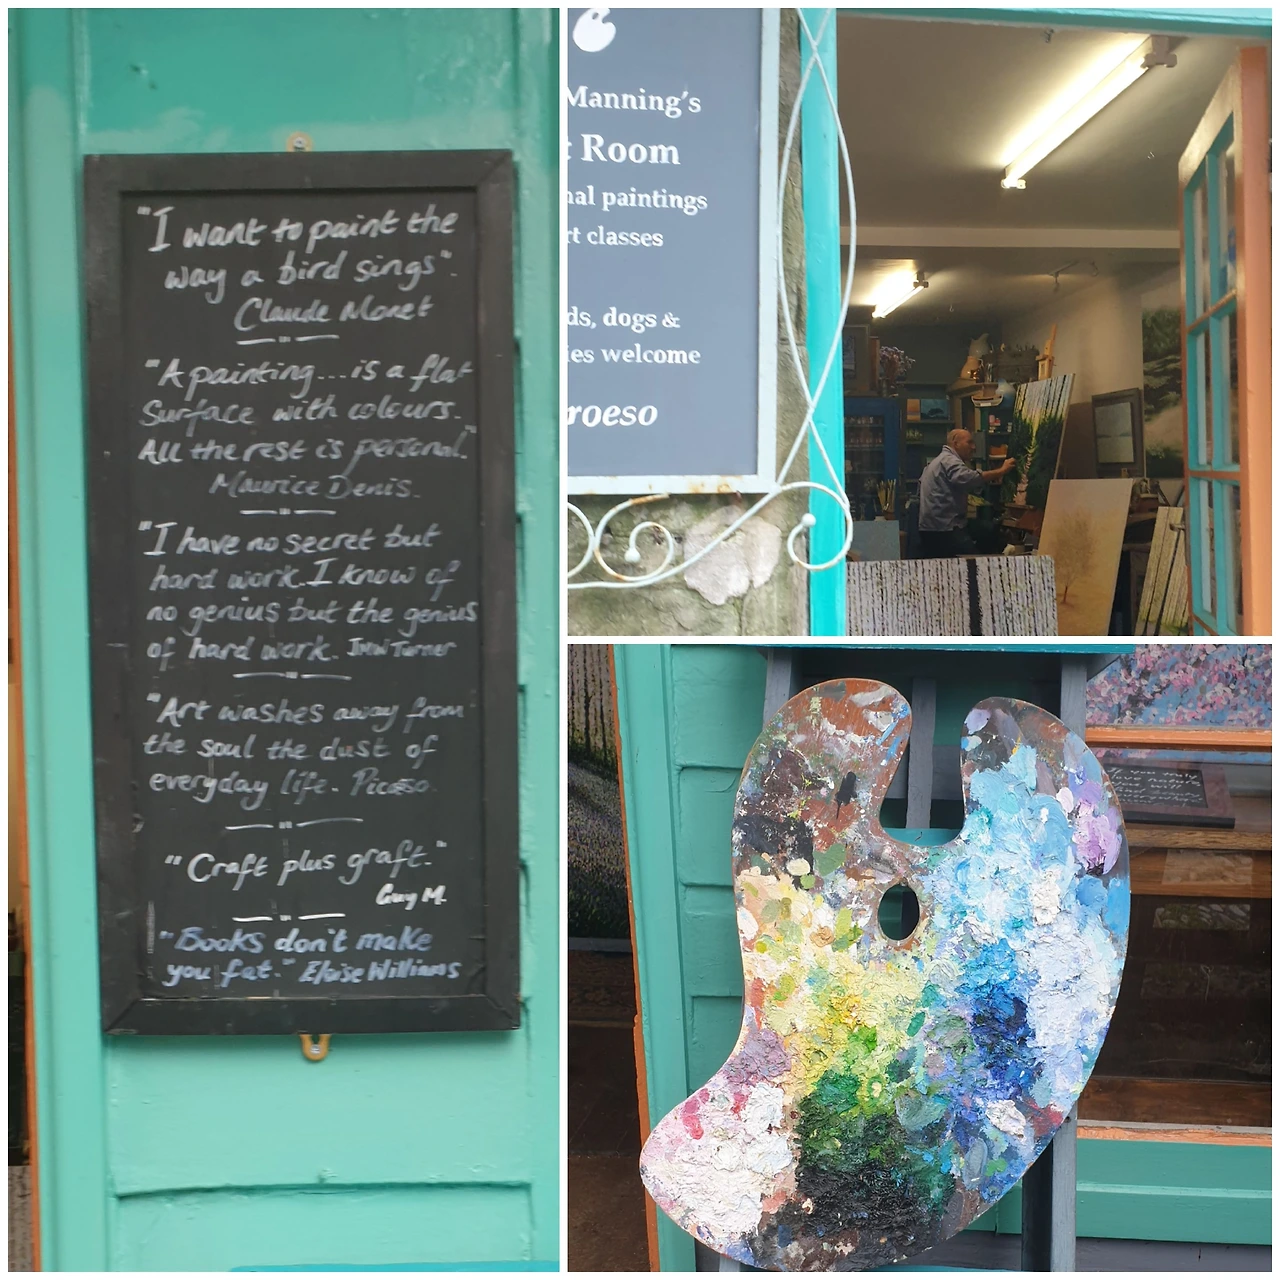 "I want to paint the
way a bird sings".
Claude Monet
"A painting...is a flat
Surface with colours.
All the rest is personal."
Maurice Denis.
"I have no secret but
hard work. I know of
no genius but the genius
of hard work. JMW Turner
"Art washes away from
the soul the dust of
everyday life. Picasso.
"Craft plus graft."
Guy M.
"Books don't make
you fat." Eloise Williams
Manning's
t Room
nal paintings
rt classes
ds, dogs &
ies welcome
roeso
love nature
will